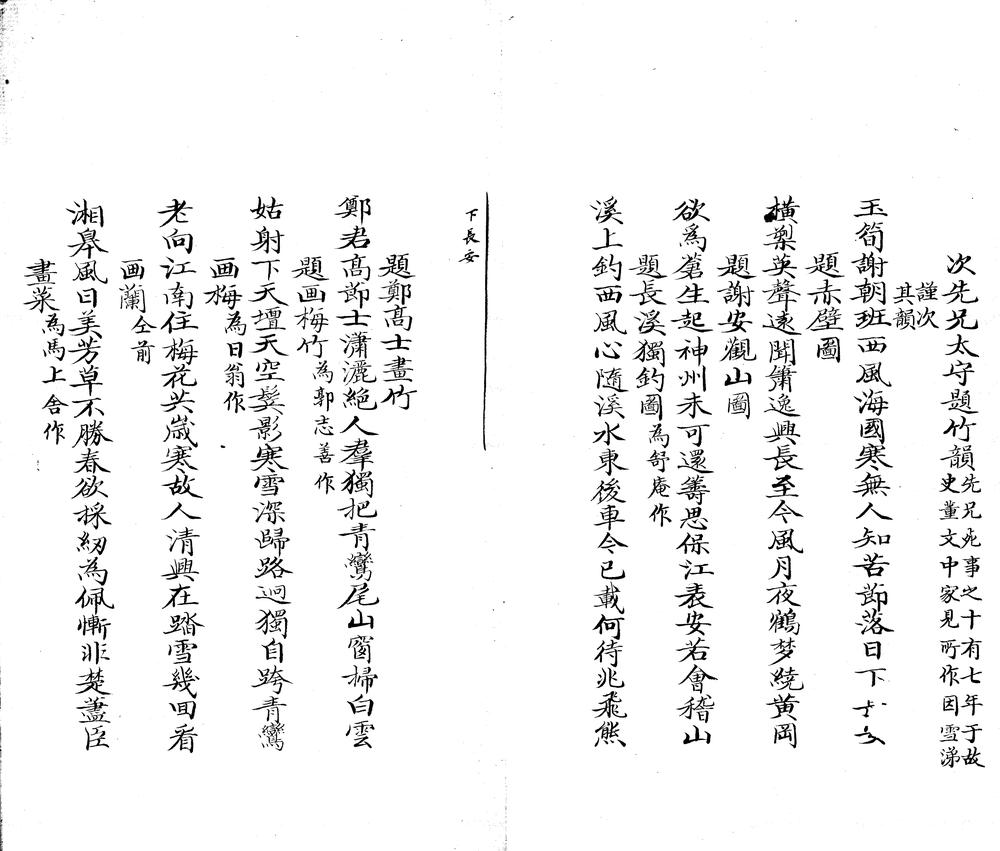 次先兄太守題竹韻先兄死事之十有七年于故
史董文中家見所作因雪涕
謹次
其韻
玉筍謝朝班西風海國寒無人知苦節落日下
題赤壁圖
橫槊英聲遠聞簫逸興長至今風月夜鶴梦繞黄岡
題謝安觀山圖
欲爲蒼生起神州未可還籌思保江表安若會稽山
題長溪獨釣圖為舒庵作
溪上釣西風心隨溪水東後車今已載何待兆飛熊
下長安
題鄭髙士畫竹
鄭君髙節士瀟灑絶人羣獨把青鸞尾山窗掃白雲
題画梅竹為郭志善作
姑射下天壇天空鬓影寒雪深歸路逈獨自跨青鸞
画梅為日翁作
老向江南住梅花共歳寒故人清興在踏雪幾回看
画蘭仝前
湘皋風日美芳草不勝春欲採紉為佩慚非楚藎臣
畫菜為馬上舍作